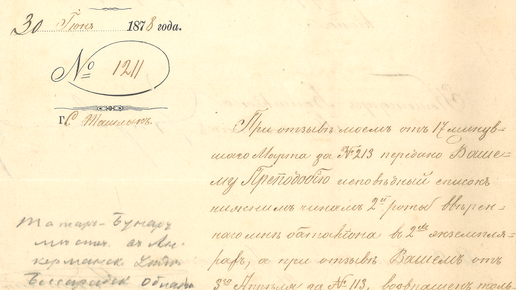 30 Юня 1878 года.
№ 1211
г. С Ташлыкъ.
При отзывѣ моемъ отъ 17 минув-
шаго Марта за № 213 передано Ваше-
му Преподобію исповѣдный списокъ
нижнимъ чинамъ 2й роты ввѣрен-
наго мнѣ баталіона въ 2хъ экземпля-
рахъ, а при отзывѣ Вашемъ отъ
3го Апрѣля за № 113, возвращенъ толь-
Татаръ-Бунаръ
въ Ак-
керманск.
Бессарабск